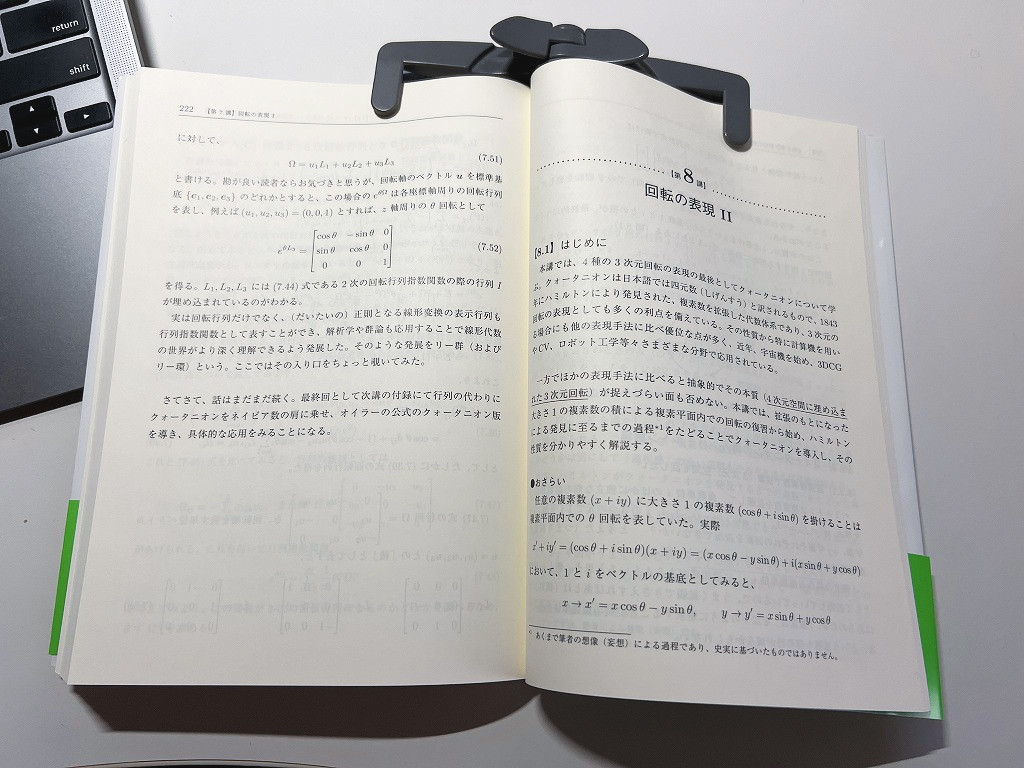 return
shift
222 【第7講】回転の表現 I
に対して,
Ω = u₁L₁ + u₂L₂ + u₃L₃ (7.51)
と書ける。勘が良い読者ならお気づきと思うが、回転軸のベクトル u を標準基
底 {e₁, e₂, e₃} のどれかとすると、この場合の e^{θΩ} は各座標軸周りの回転行列
を表し、例えば (u₁, u₂, u₃) = (0, 0, 1) とすれば、z 軸周りの θ 回転として
e^{θL₃} = [cosθ −sinθ 0
sinθ cosθ 0
0 0 1] (7.52)
を得る。L₁, L₂, L₃ には (7.44) 式である 2 次の回転行列指数関数の際の行列 I
が埋め込まれているのがわかる。
実は回転行列だけでなく、(だいたいの) 正則となる線形変換の表示行列も
行列指数関数として表すことができ、解析学や群論も応用することで線形代数
の世界がより深く理解できるよう発展した。そのような発展をリー群 (および
リー環) という。ここではその入り口をちょっと覗いてみた。
さてさて、話はまだまだ続く。最終回として次講の付録にて行列の代わりに
クォータニオンをネイピア数の肩に乗せ、オイラーの公式のクォータニオン版
を導き、具体的な応用をみることになる。
【第8講】
回転の表現 II
【8.1】はじめに
本講では、4 種の 3 次元回転の表現の最後としてクォータニオンについて学
ぶ。クォータニオンは日本語では四元数 (しげんすう) と訳されるもので、1843
年にハミルトンにより発見された、複素数を拡張した代数体系であり、3 次元の
回転の表現としても多くの利点を備えている。その性質から特に計算機を用い
る場合にも他の表現手法に比べ優位な点が多く、近年、宇宙機を始め、3DCG
やCV、ロボット工学等々さまざまな分野で応用されている。
一方でほかの表現手法に比べると抽象的でその本質 (4次元空間に埋め込ま
れた3次元回転) が捉えづらい面も否めない。本講では、拡張のもとになった
大きさ 1 の複素数の積による複素平面内での回転の復習から始め、ハミルトン
による発見に至るまでの過程*¹をたどることでクォータニオンを導入し、その
性質を分かりやすく解説する。
●おさらい
任意の複素数 (x + iy) に大きさ 1 の複素数 (cosθ + i sinθ) を掛けることは
複素平面内での θ 回転を表していた。実際
x′ + iy′ = (cosθ + i sinθ)(x + iy) = (x cosθ − y sinθ) + i(x sinθ + y cosθ)
において、1 と i をベクトルの基底としてみると、
x → x′ = x cosθ − y sinθ, y → y′ = x sinθ + y cosθ
あくまで筆者の想像 (妄想) による過程であり、史実に基づいたものではありません。